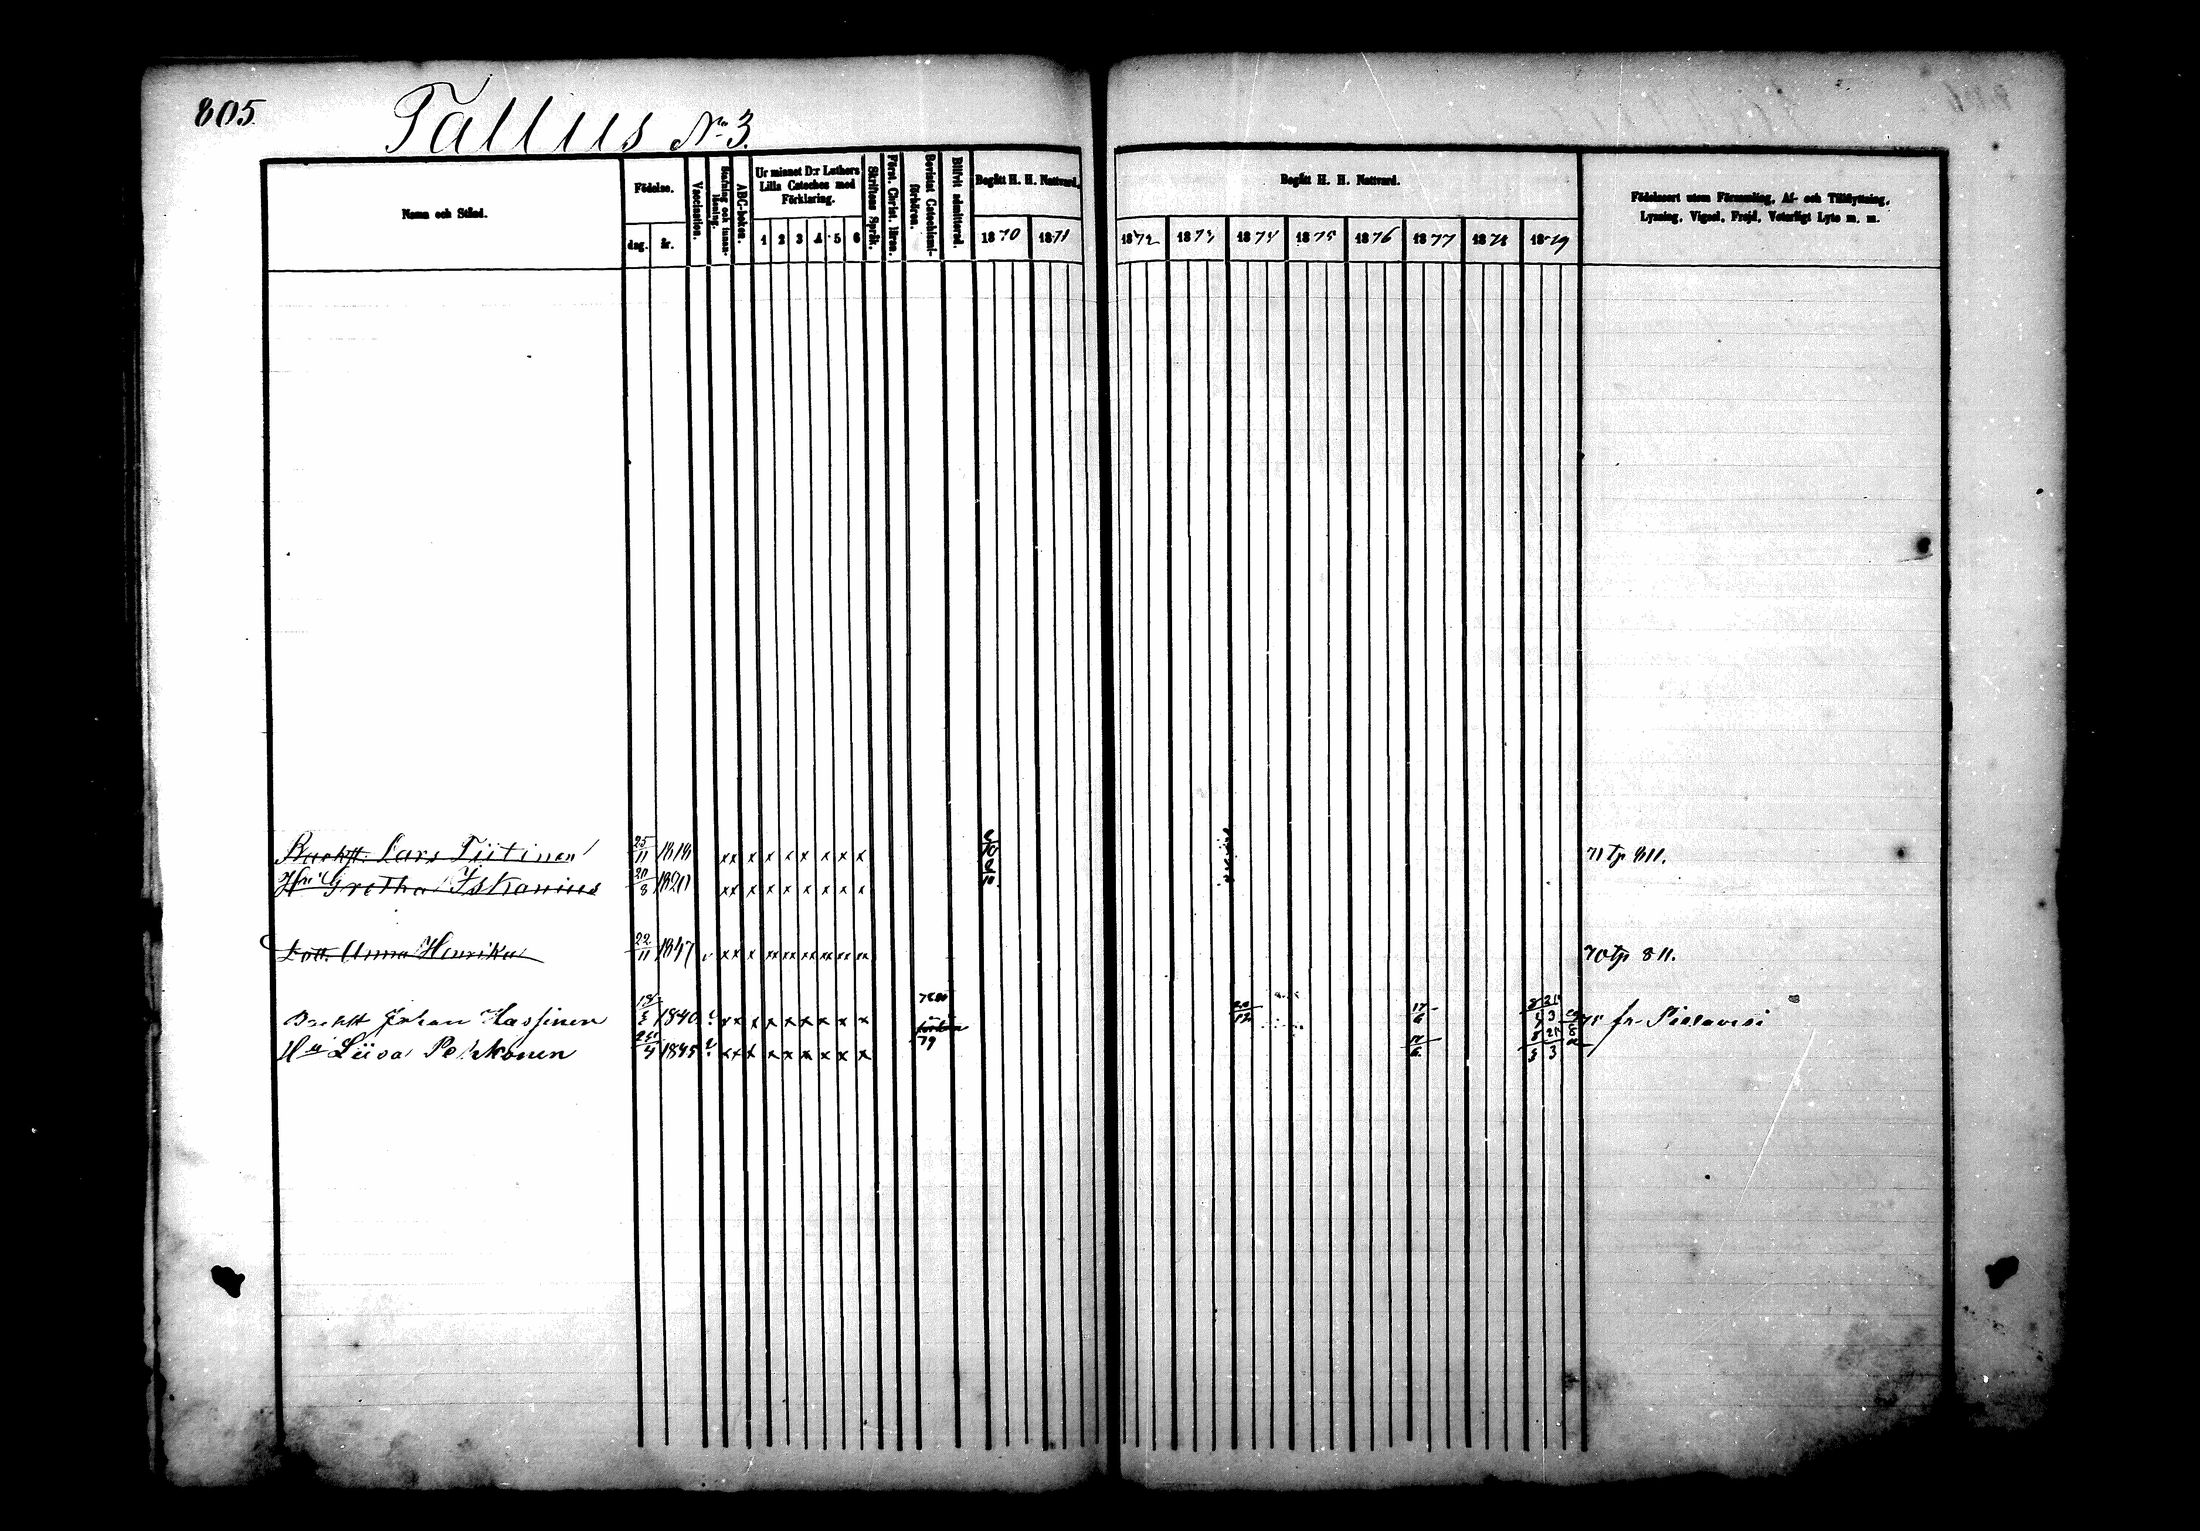 805.
Tallus No 3.
Namn och Stånd.
Födelse.
dag.
år.
Vaccination.
Stafning och innan-läsning.
ABC-boken.
Ur minnet D:r Luthers
Lilla Cateches med
Förklaring.
1 2 3 4 5 6
Skriftens Språk.
Först. Christ. läran.
Bevistat Catechismi-förhören.
Blifvit admitterad.
Begått H. H. Nattvard.
1870 1871
Begått H. H. Nattvard.
1872 1873 1874 1875 1876 1877 1878 1879
Födelseort utom Församling, Af- och Tillflyttning,
Lysning, Vigsel, Frejd, Veterligt Lyte m. m.
Lars Tiitinen 25/11 1818 xx x x x x x x x 71 tp 811.
Hu Gretha Iskanius 20/8 1820 xx x x x x x x x
Dott. Anna Henrika 22/11 1847 v xx x xx xx xx xx xx xx 70 tp 811.
Johan Hassinen 1840 xx x x x x x x x 17/6 75 fr Pielavesi
Hu Liisa Pekkonen 1845 xx x x x x x x x 79 17/6